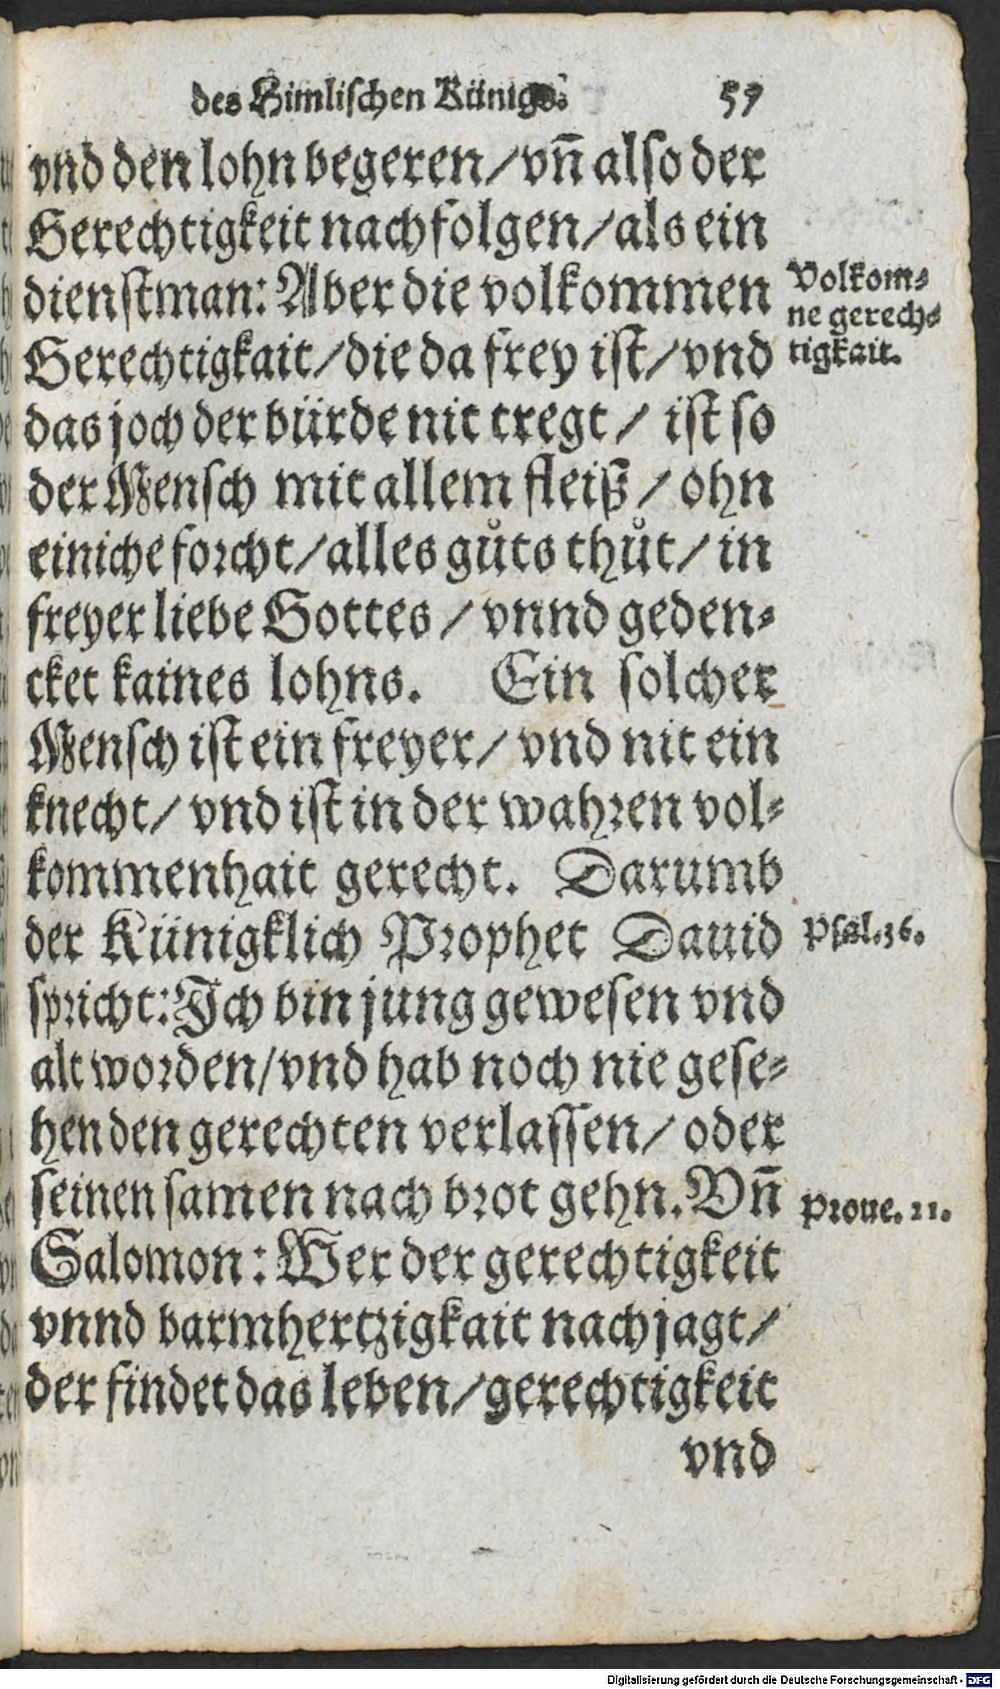 des Himlischen Künigs. 57
vnd den lohn begeren/vn̄ also der
Gerechtigkeit nachfolgen/als ein
dienstman: Aber die volkommen
Volkom⸗
ne gerech⸗
tigkait.
Gerechtigkait/die da frey ist/vnd
das joch der bürde nit tregt/ ist so
der Mensch mit allem fleiß/ohn
einiche forcht/alles gůts thůt/in
freyer liebe Gottes/vnnd geden⸗
cket kaines lohns. Ein solcher
Mensch ist ein freyer/vnd nit ein
knecht/vnd ist in der wahren vol⸗
kommenhait gerecht. Darumb
der Künigklich Prophet Dauid
Psal.36.
spricht: Ich bin jung gewesen vnd
alt worden/vnd hab noch nie gese⸗
hen den gerechten verlassen/oder
seinen samen nach brot gehn. Vn̄
Proue. 21.
Salomon: Wer der gerechtigkeit
vnnd barmhertzigkait nachjagt/
der findet das leben/gerechtigkeit
vnd
Digitalisierung gefördert durch die Deutsche Forschungsgemeinschaft - DFG